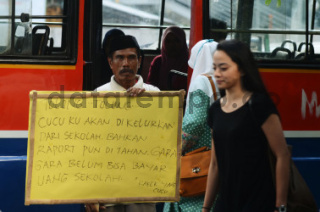 CUCU KU AKAN DI KELUARKAN
DARI SEKOLAH BAHKAN
RAPORT PUN DI TAHAN GARA
GARA BELUM BISA BAYAR
UANG SEKOLAH
datatempo